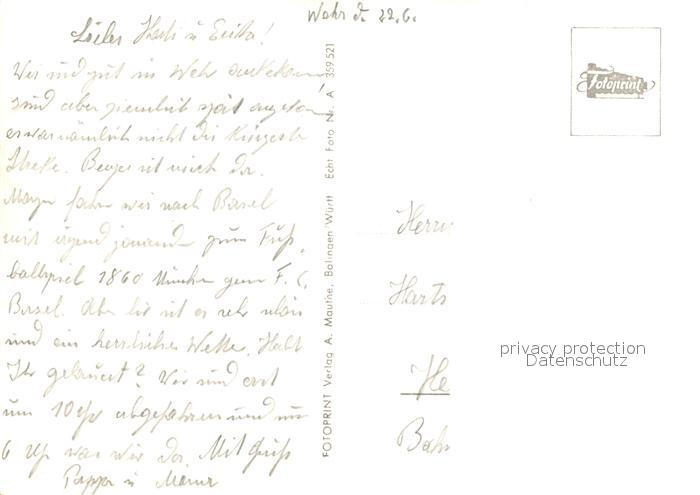 Wehr d. 22.6.
Liebe Hati u Erika!
Wir sind gut in Wehr
sind aber ziemlich spät
es war nämlich nicht die kürzeste
Streke. ist noch da.
Morgen fahren wir nach Basel
mit irgend jemanden zum Fuß
ballspiel 1860 München gegen F. C.
Basel. Aber hir ist es sehr schön
und ein herrliches Wetter. Habt
Ihr gelauert? Wir sind erst
um 10 Uhr abgefahren und um
6 Uhr war wir da. Mit Gruß
Pappa u Mama
FOTOPRINT Verlag A. Mauthe, Balingen/Württ Echt Foto Nr. A 359 521
Fotoprint
Herrn
Harts
He
Bach
privacy protection
Datenschutz